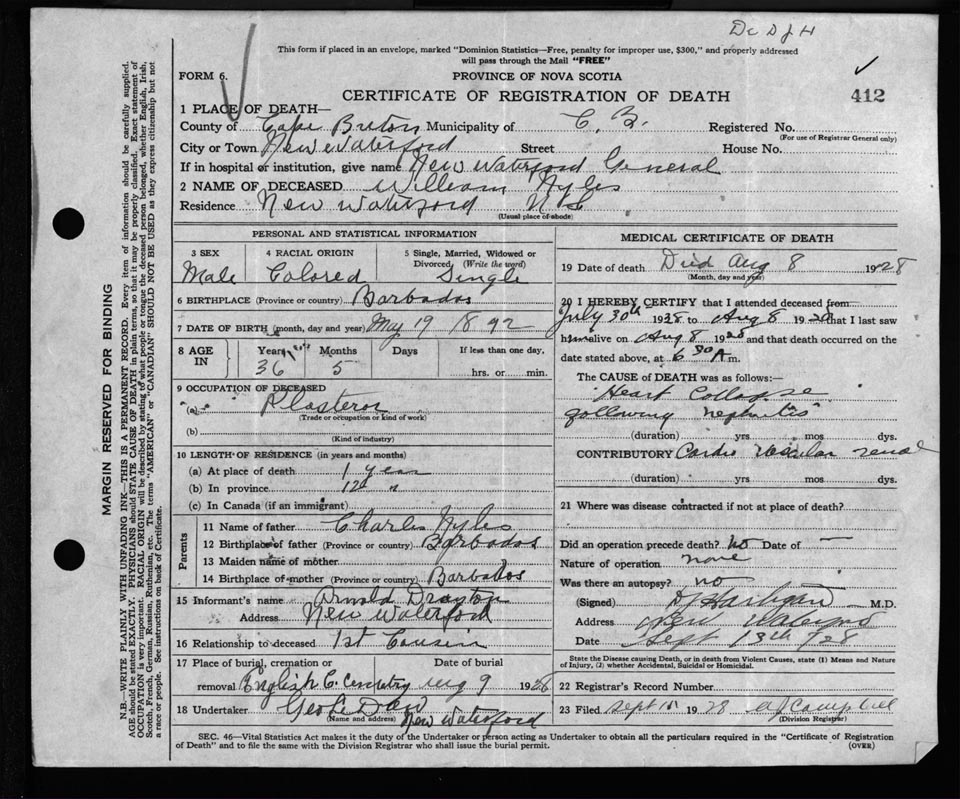 Dr D J H
This form if placed in an envelope, marked "Dominion Statistics—Free, penalty for improper use, $300," and properly addressed
will pass through the Mail "FREE"
FORM 6.
PROVINCE OF NOVA SCOTIA
CERTIFICATE OF REGISTRATION OF DEATH
412
1 PLACE OF DEATH—
County of Cape Breton Municipality of C. B. Registered No.
(For use of Registrar General only)
City or Town New Waterford Street House No.
If in hospital or institution, give name New Waterford General
2 NAME OF DECEASED William Nyles
Residence New Waterford N S
(Usual place of abode)
PERSONAL AND STATISTICAL INFORMATION
3 SEX Male
4 RACIAL ORIGIN Colored
5 Single, Married, Widowed or Divorced (Write the word) Single
6 BIRTHPLACE (Province or country) Barbados
7 DATE OF BIRTH (month, day and year) May 19 1892
8 AGE IN Years 36 Months 5 Days If less than one day, hrs. or min.
9 OCCUPATION OF DECEASED
(a) Plasterer
(Trade or occupation or kind of work)
(b)
(Kind of industry)
10 LENGTH OF RESIDENCE (in years and months)
(a) At place of death 1 year
(b) In province 12 "
(c) In Canada (if an immigrant)
Parents
11 Name of father Charles Nyles
12 Birthplace of father (Province or country) Barbados
13 Maiden name of mother
14 Birthplace of mother (Province or country) Barbados
15 Informant's name Arnold Drayton
Address New Waterford
16 Relationship to deceased 1st Cousin
17 Place of burial, cremation or removal English C. Cemetry
Date of burial Aug 9 1928
18 Undertaker Geo L Daw
(Name and address) New Waterford
MEDICAL CERTIFICATE OF DEATH
19 Date of death Died Aug 8 1928
(Month, day and year)
20 I HEREBY CERTIFY that I attended deceased from
July 30th 1928 to Aug 8 1928 that I last saw
him alive on Aug 8 1928 and that death occurred on the
date stated above, at 6 30 A m.
The CAUSE of DEATH was as follows:—
Heart Collapse
following nephritis
(duration) yrs mos dys.
CONTRIBUTORY Cardio vascular renal
(duration) yrs mos dys.
21 Where was disease contracted if not at place of death?
Did an operation precede death? no Date of —
Nature of operation none
Was there an autopsy? no
(Signed) M.D.
Address New Waterford
Date Sept 13th /28
State the Disease causing Death, or in death from Violent Causes, state (1) Means and Nature
of Injury, (2) whether Accidental, Suicidal or Homicidal.
22 Registrar's Record Number
23 Filed Sept 15 1928 A J Campbell
(Division Registrar)
SEC. 46—Vital Statistics Act makes it the duty of the Undertaker or person acting as Undertaker to obtain all the particulars required in the "Certificate of Registration
of Death" and to file the same with the Division Registrar who shall issue the burial permit.
(OVER)
MARGIN RESERVED FOR BINDING
N.B.—WRITE PLAINLY WITH UNFADING INK—THIS IS A PERMANENT RECORD. Every item of information should be carefully supplied.
AGE should be stated EXACTLY. PHYSICIANS should STATE CAUSE OF DEATH in plain terms, so that it may be properly classified. Exact statement of
OCCUPATION is very important. RACIAL ORIGIN will be described by stating to what people or tongue the deceased person belonged, whether English, Irish,
Scotch, French, German, Russian, Ruthenian, etc. The terms "AMERICAN" or "CANADIAN" SHOULD NOT BE USED as they express citizenship but not
a race or people. See instructions on back of Certificate.